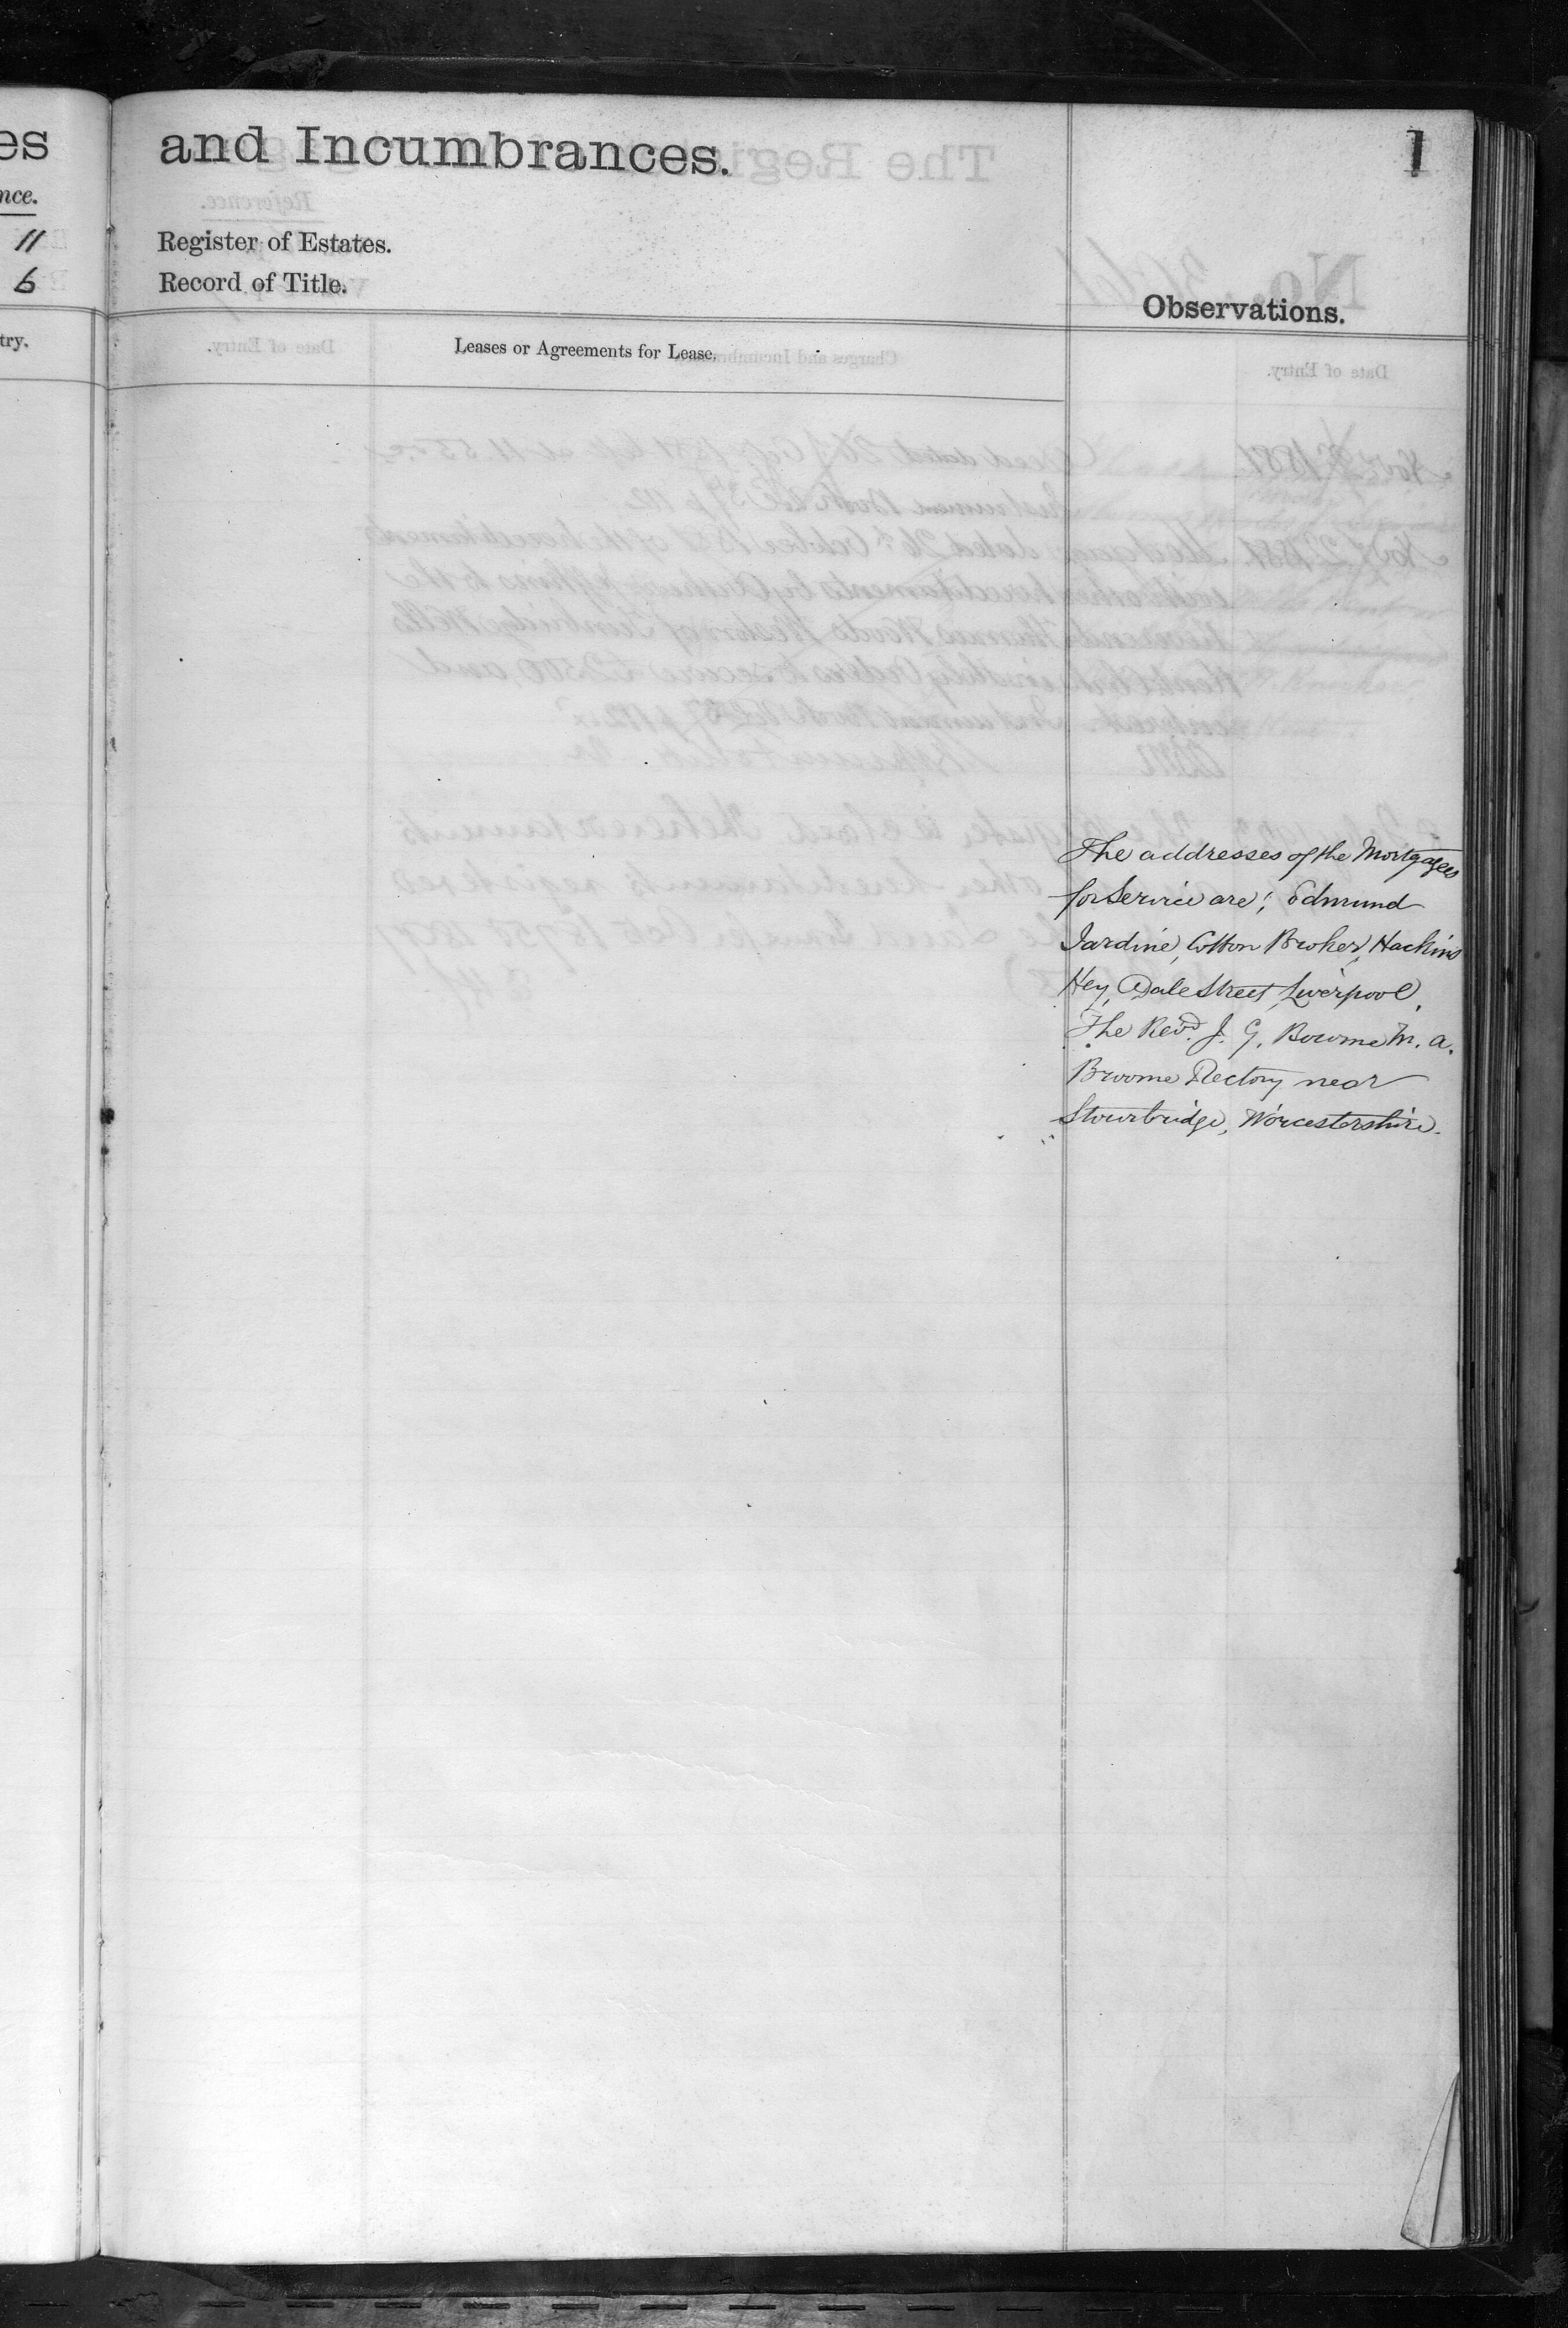 es
and Incumbrances.
1
nce.
11
Register of Estates.
6
Record of Title.
Observations.
try.
Leases or Agreements for Lease.
The addresses of the Mortgagees
for Service are; Edmund
Jardine, Cotton Broker, Hackins
Hey, Dale Street, Liverpool,
The Revd. J. G. Bourne M. A.
Broome Rectory near
Stourbridge, Worcestershire.